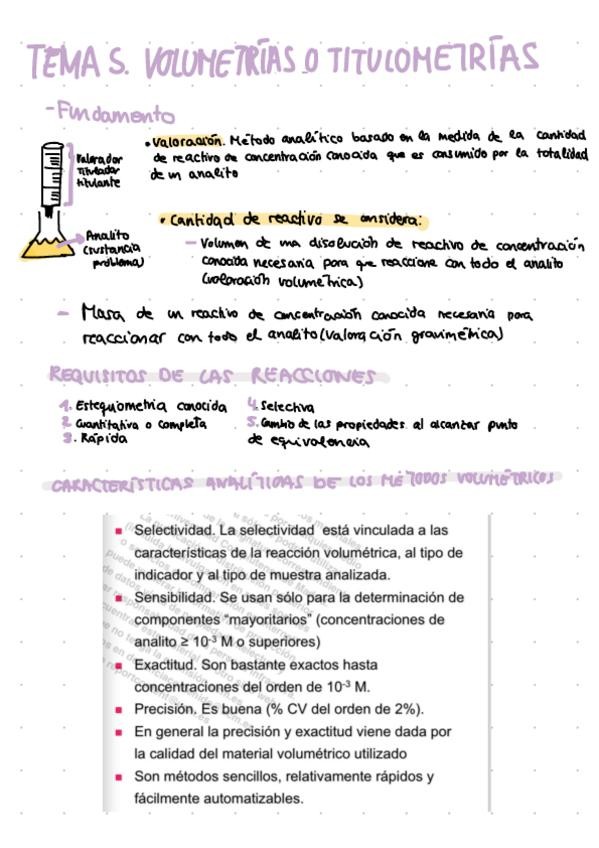 TEMA 5. VOLUMETRÍAS O TITULOMETRÍAS
-Fundamento
• Valoración. Método analítico basado en la medida de la cantidad
de reactivo de concentración conocida que es consumido por la totalidad
de un analito
Valorador
Titulador
titulante
• Cantidad de reactivo se considera:
Analito
(sustancia
problema)
- Volumen de una disolución de reactivo de concentración
conocida necesaria para que reaccione con todo el analito
(valoración volumétrica)
- Masa de un reactivo de concentración conocida necesaria para
reaccionar con todo el analito (valoración gravimétrica)
REQUISITOS DE LAS REACCIONES
1. Estequiometría conocida
2. Cuantitativa o completa
3. Rápida
4. Selectiva
5. Cambio de las propiedades al alcanzar punto
de equivalencia
CARACTERÍSTICAS ANALÍTICAS DE LOS MÉTODOS VOLUMÉTRICOS
▪ Selectividad. La selectividad está vinculada a las
características de la reacción volumétrica, al tipo de
indicador y al tipo de muestra analizada.
▪ Sensibilidad. Se usan sólo para la determinación de
componentes “mayoritarios” (concentraciones de
analito ≥ 10⁻³ M o superiores)
▪ Exactitud. Son bastante exactos hasta
concentraciones del orden de 10⁻³ M.
▪ Precisión. Es buena (% CV del orden de 2%).
▪ En general la precisión y exactitud viene dada por
la calidad del material volumétrico utilizado
▪ Son métodos sencillos, relativamente rápidos y
fácilmente automatizables.